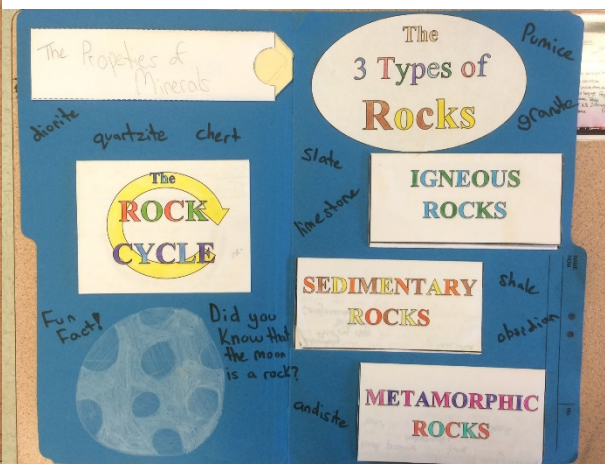 The Propeties of
Minerals
diorite
quartzite
chert
The
ROCK
CYCLE
Fun
Fact!
Did you
Know that
the moon
is a rock?
The
3 Types of
Rocks
Pumice
granite
slate
limestone
IGNEOUS
ROCKS
SEDIMENTARY
ROCKS
shale
obsedian
andisite
METAMORPHIC
ROCKS